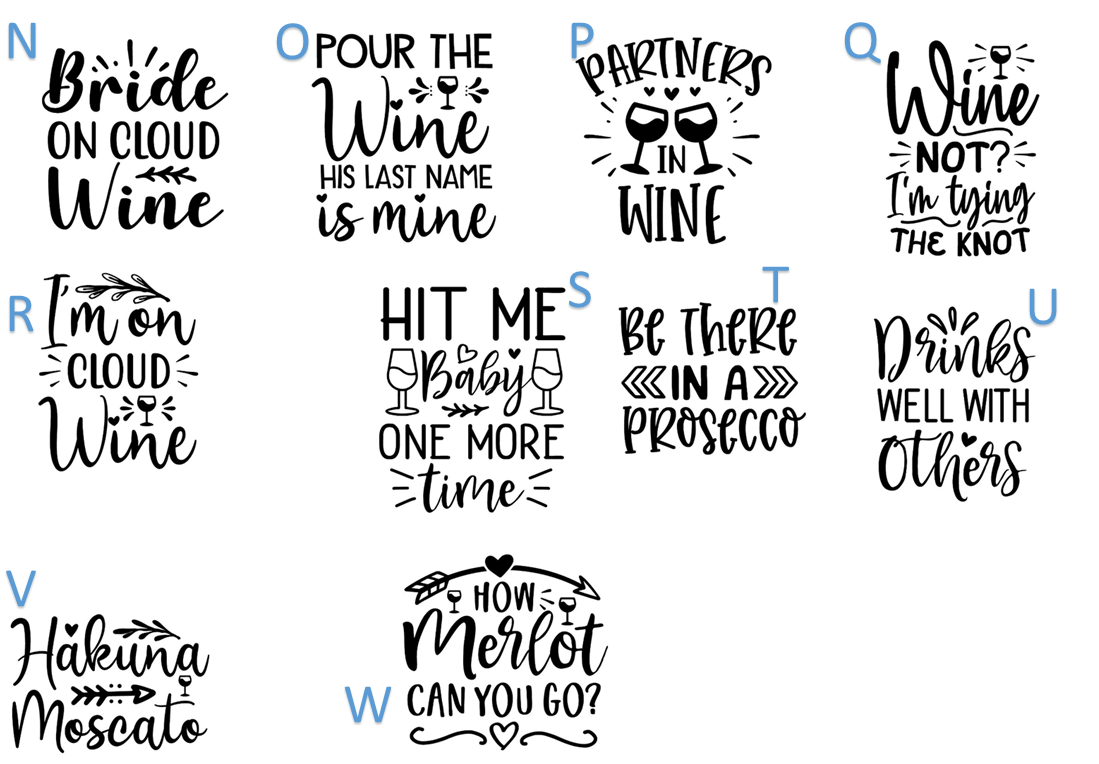 N
Bride
ON CLOUD
Wine
O
POUR THE
Wine
HIS LAST NAME
is mine
P
PARTNERS
IN
WINE
Q
Wine
NOT?
I'm tying
THE KNOT
R
I'm on
CLOUD
Wine
S
HIT ME
Baby
ONE MORE
time
T
BE THERE
IN A
PROSECCO
U
Drinks
WELL WITH
Others
V
Hakuna
Moscato
W
HOW
Merlot
CAN YOU GO?